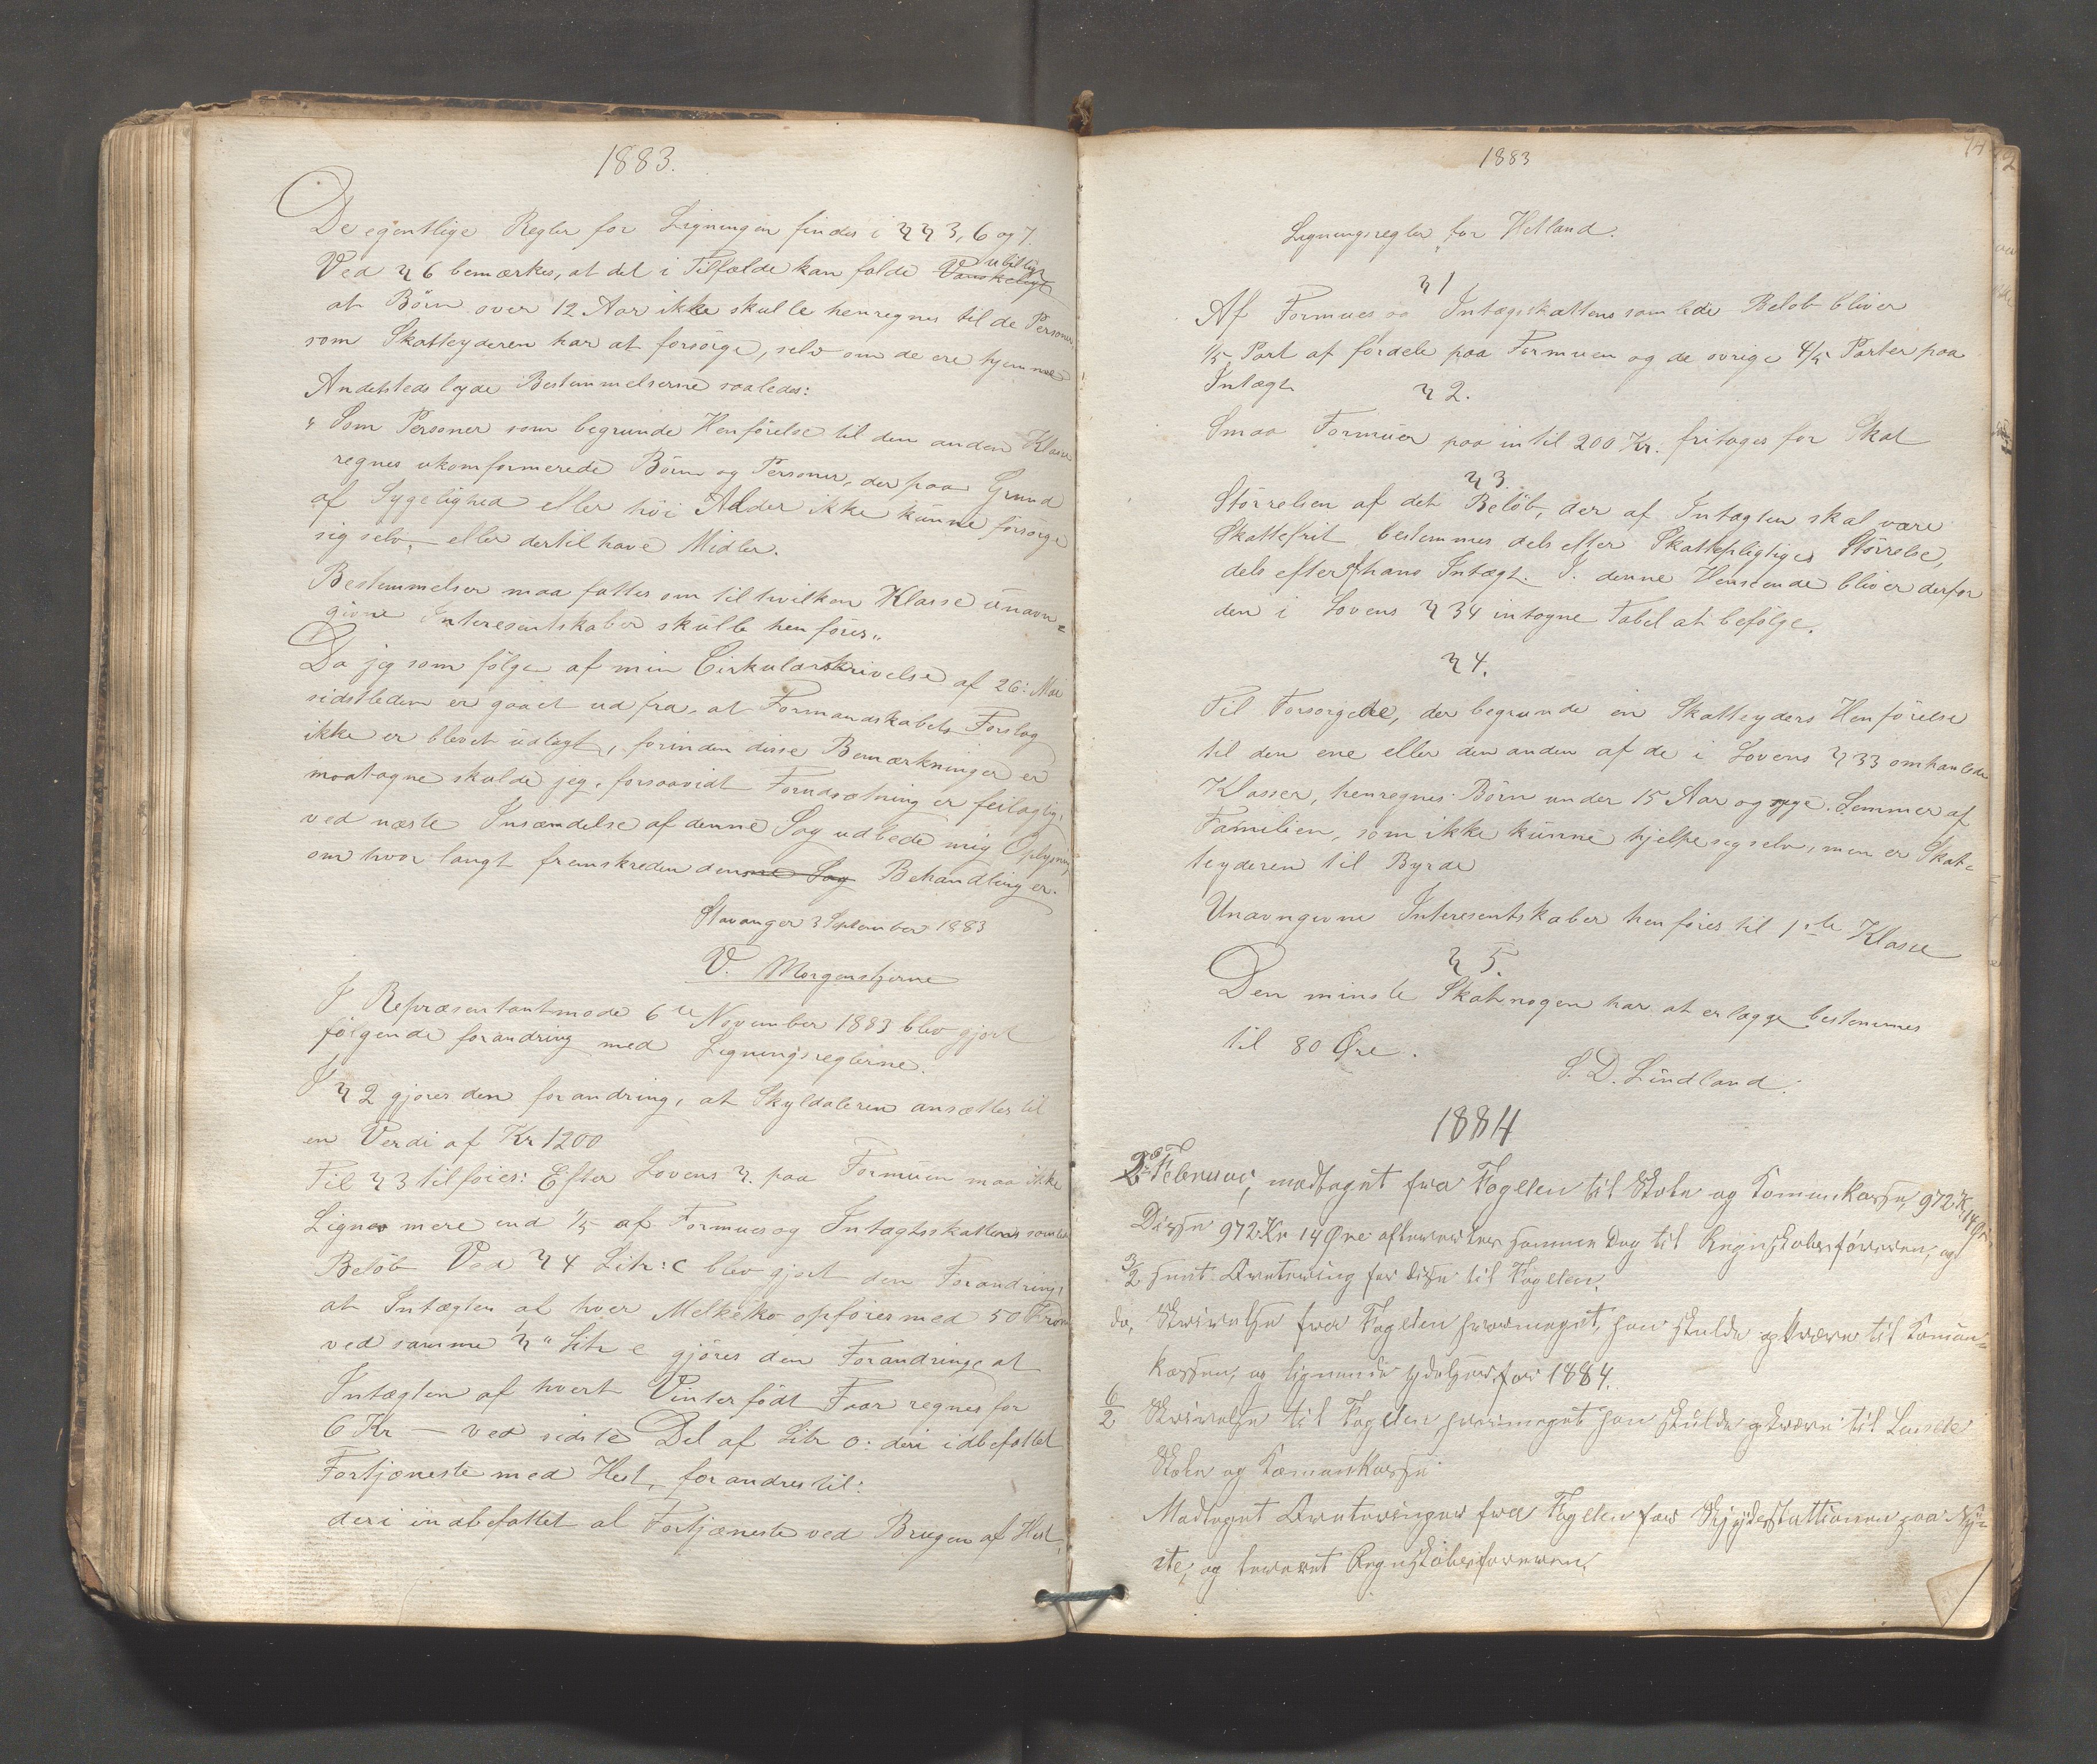 1883.
De egentlige Regler for Ligningen findes i §§ 3, 6 og 7.
Ved § 6 bemærkes, at det i Tilfælde kan falde Vanskeligt ubilligt
at Börn over 12 Aar ikke skulle henregnes til de Personer,
som Skatteyderen har at forsörge, selv om de ere hjemme
Andetsteds lyde Bestemmelserne saaledes:
"Som Personer som begrunde Henförelse til den anden Klasse
regnes ukomformerede Börn og Personer, der paa Grund
af Sygelighed eller höi Alder ikke kunne forsörge
sig selv, eller dertil have Midler.
Bestemmelser maa fattes om til hvilken Klasse unavn=
givne Interesentskaber skulle henföres"
Da jeg som fölge af min Cirkulærskrivelse af 26: Mai
sidstleden er gaaet ud fra, at Formandskabets Forslag
ikke er blevet udlagt, forinden disse Bemærkninger er
modtagne skulde jeg, forsaavidt Forudsætning er feilagtig,
ved næste Insændelse af denne Sag udbede mig Oplysning
om hvor langt fremskreden denne Sag Behandling er.
Stavanger 3 September 1883
V. Morgenstjerne
I Repræsentantmöde 6te November 1883 blev gjort
fölgende forandring med Ligningsreglerne.
I § 2 gjöres den forandring, at Skyldaleren ansættes til
en Verdi af Kr 1200
Til § 3 tilföies: Efter Lovens §. paa Formuen maa ikke
Lignes mere end 1/5 af Formues og Intægtsskattens samlede
Belöb Ved § 4 Litr: c blev gjort den Forandring,
at Intægten af hver Melkeko opföres med 50 Kron
ved samme § " Litr e gjöres den Forandringe at
Intægten af hvert Vinterfödt Faar regnes for
6 Kr — ved sidste Del af Litr o: deri idbefattet
Fortjæneste med Hest, forandres til:
deri indbefattet al Fortjæneste ved Brugen af Hest,
1883
Ligningsregler for Hetland.
§ 1
Af Formues og Intægsskattens samlede Beløb bliver
1/5 Part af fordele paa Formuen og de ovrige 4/5 Parter paa
Intægt
§ 2.
Smaa Formuer paa intil 200 Kr. fritages for Skat
§ 3.
Störrelsen af det Belöb, der af Intægten skal være
Skattefrit bestemmes dels efter Skattepligtiges Störrelse,
dels efter hans Intægt. I denne Henseende bliver derfor
den i Lovens § 34 intagne Tabel at befölge.
§ 4.
Til Forsörgede, der begrunde en Skatteyders Henförelse
til den ene eller den anden af de i Lovens § 33 omhandlede
Klasser, henregnes Börn under 15 Aar og syge Lemmer af
Familien, som ikke kunne hjelpe sig selv, men er Skat=
teyderen til Byrde
Unavngivne Interesentskaber henföres til 1ste Klasse
§ 5.
Den minste Skat nogen har at erlægge bestemmes
til 80 Øre.
S. D. Lindland.
1884
2de Februar, modtaget fra Fogden til Skole og Komunkassen, 972 Kr. 14 Øre
Disse 972 Kr 14 Øre afleverter samme Dag til Regnskabsføreren, og
3/2 sent Qvitering for disse til Fogden.
do, Skrivelse fra Fogden hvormeget han skulde opkræve til Komun=
kassen, og lignende ydelser for 1884.
6/2 Skrivelse til Fogden hvormeget han skulde opkræve til Lensets
Skole og Komunkasse
Modtaget Qviteringer fra Fogden for Skydsstattionen paa Ny=
ste, og leveret Regnskabsføreren.